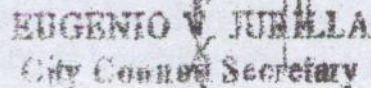 EUGENIO V JURILLA
City Council Secretary